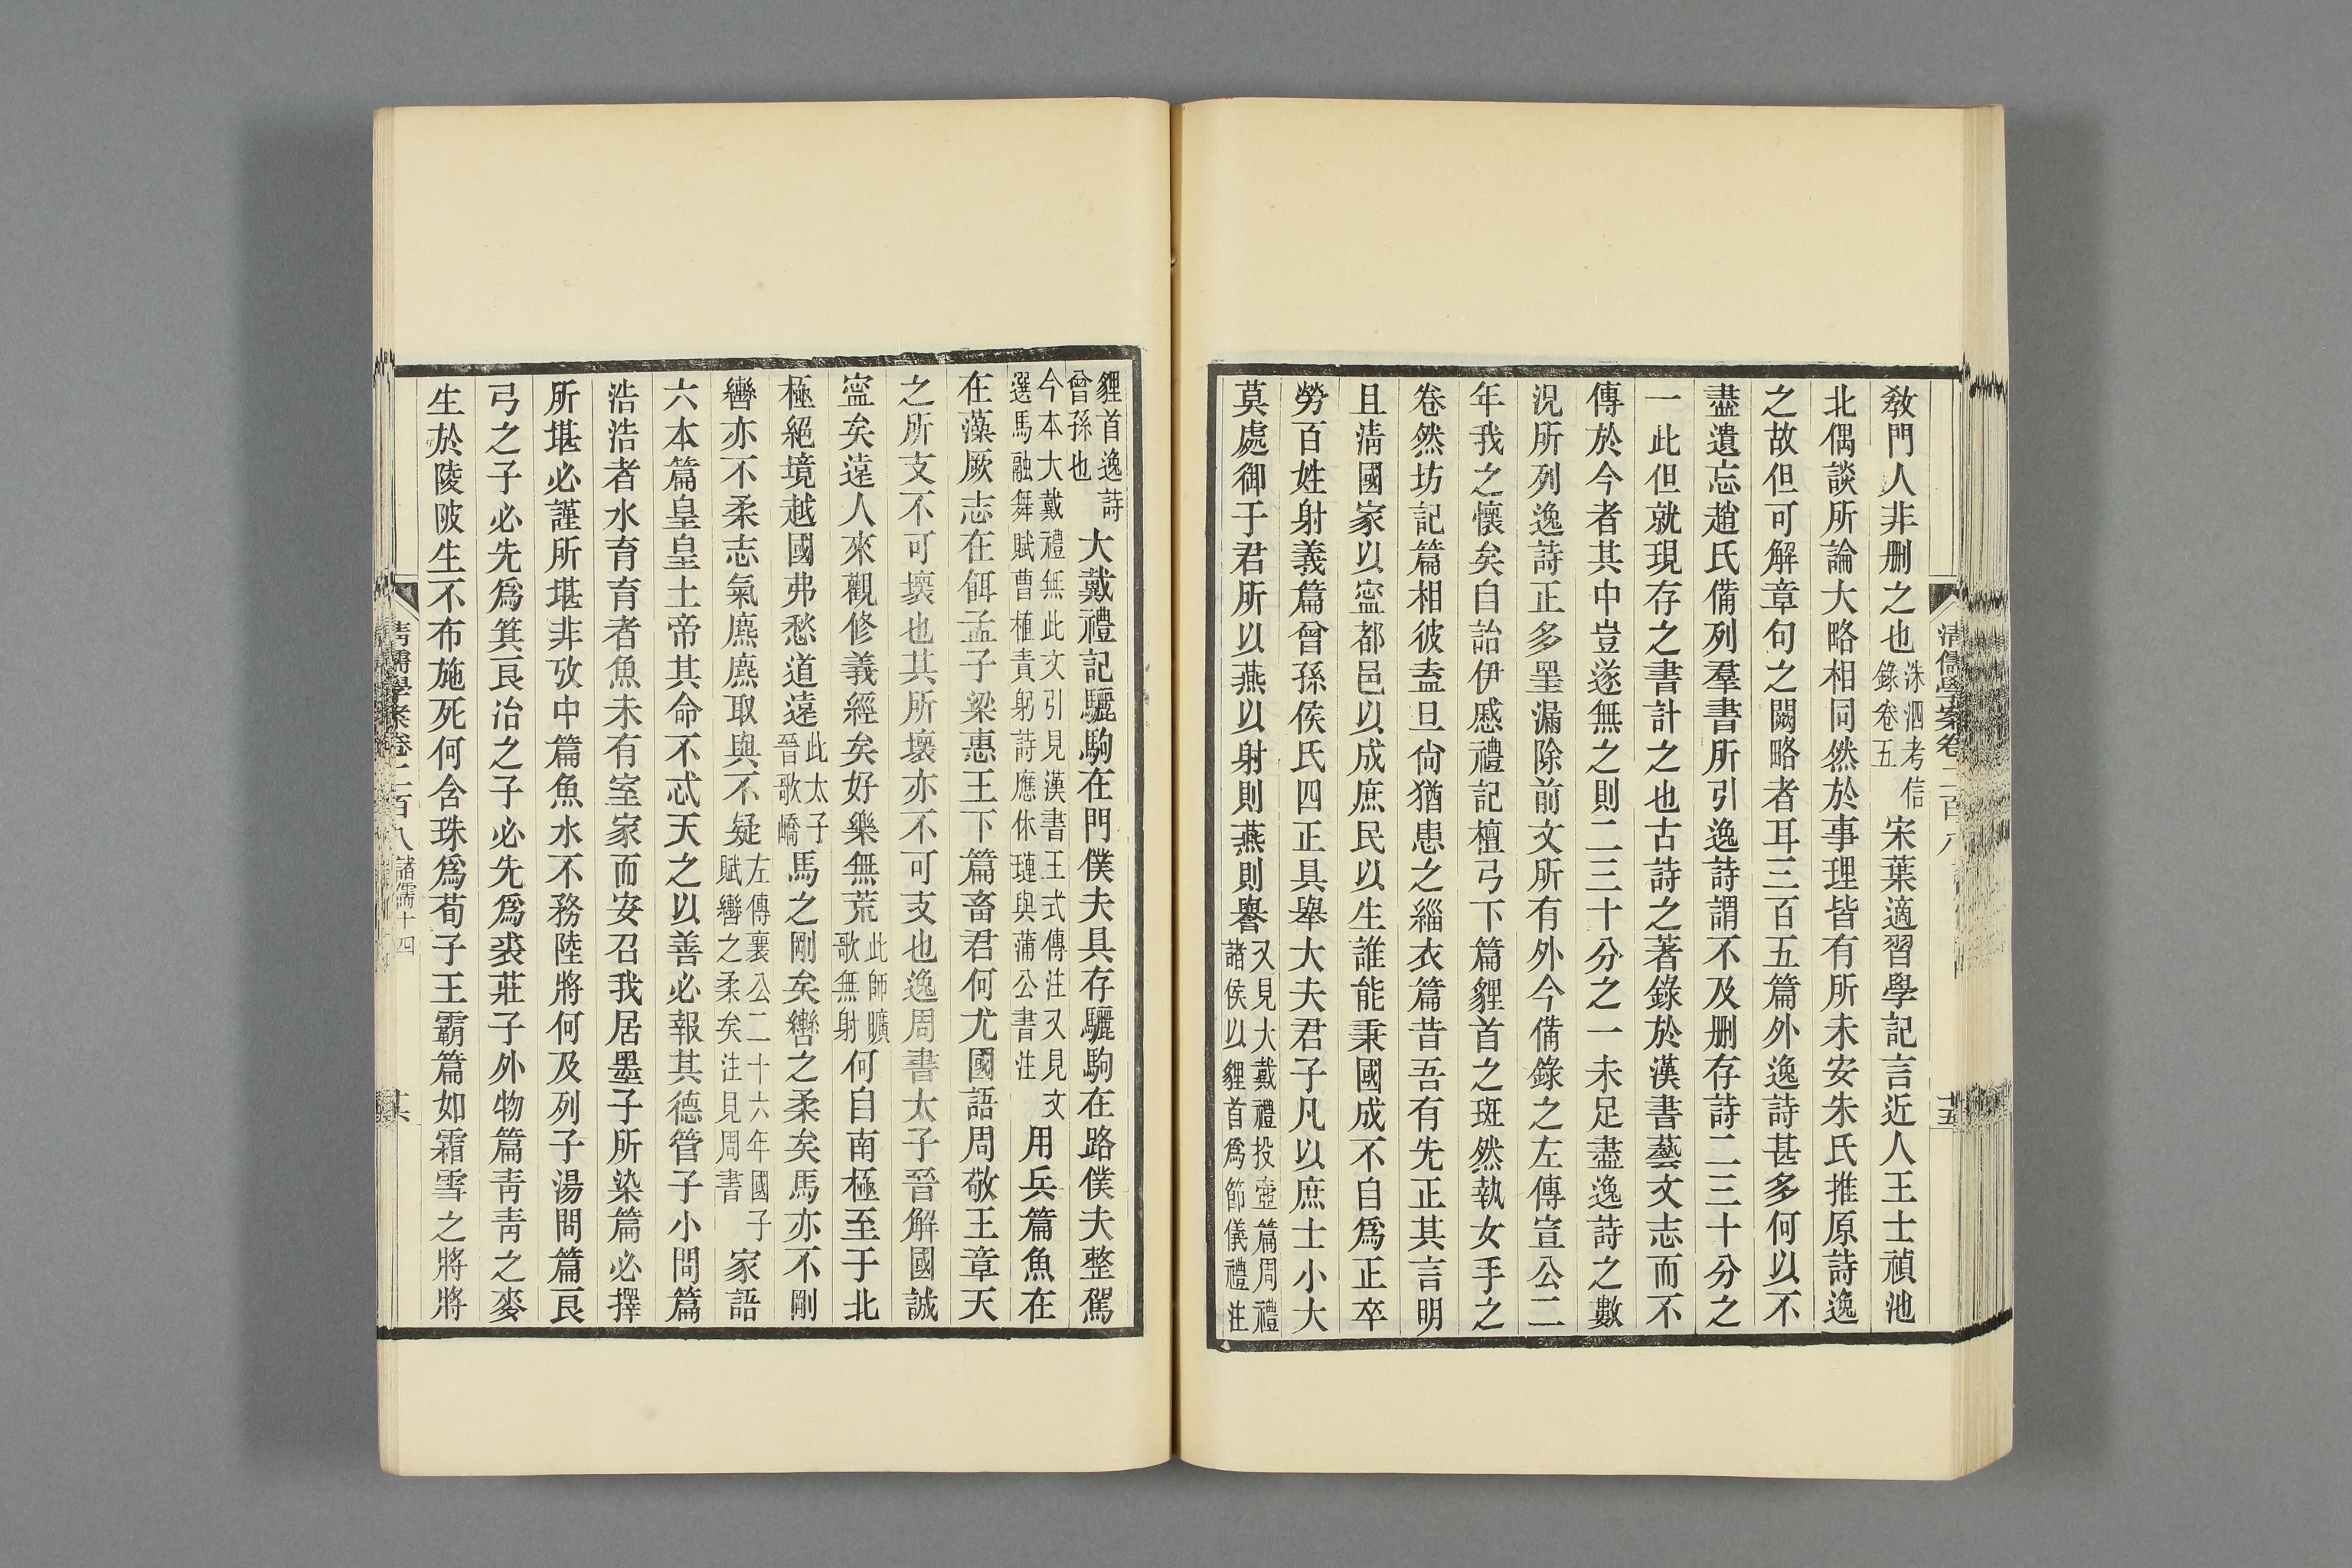 敎門人非删之也洙泗考信錄卷五宋葉適習學記言近人王士禎池
北偶談所論大略相同然於事理皆有所未安朱氏推原詩逸
之故但可解章句之闕略者耳三百五篇外逸詩甚多何以不
盡遺忘趙氏備列羣書所引逸詩謂不及删存詩二三十分之
一此但就現存之書計之也古詩之著錄於漢書藝文志而不
傳於今者其中豈遂無之則二三十分之一未足盡逸詩之數
況所列逸詩正多罣漏除前文所有外今備錄之左傳宣公二
年我之懷矣自詒伊慼禮記檀弓下篇貍首之斑然執女手之
卷然坊記篇相彼盍旦尙猶患之緇衣篇昔吾有先正其言明
且淸國家以寍都邑以成庶民以生誰能秉國成不自爲正卒
勞百姓射義篇曾孫侯氏四正具舉大夫君子凡以庶士小大
莫處御于君所以燕以射則燕則譽又見大戴禮投壺篇周禮諸侯以貍首爲節儀禮注
貍首逸詩曾孫也大戴禮記驪駒在門僕夫具存驪駒在路僕夫整駕
今本大戴禮無此文引見漢書王式傳注又見文選馬融舞賦曹植責躬詩應休璉與蒲公書注用兵篇魚在
在藻厥志在餌孟子梁惠王下篇畜君何尤國語周敬王章天
之所支不可壞也其所壞亦不可支也逸周書太子晉解國誠
寍矣遠人來觀修義經矣好樂無荒此師曠歌無射何自南極至于北
極絕境越國弗愁道遠此太子晉歌嶠馬之剛矣轡之柔矣馬亦不剛
轡亦不柔志氣麃麃取與不疑左傳襄公二十六年國子賦轡之柔矣注見周書家語
六本篇皇皇上帝其命不忒天之以善必報其德管子小問篇
浩浩者水育育者魚未有室家而安召我居墨子所染篇必擇
所堪必謹所堪非攷中篇魚水不務陸將何及列子湯問篇良
弓之子必先爲箕良冶之子必先爲裘莊子外物篇靑靑之麥
生於陵陂生不布施死何含珠爲荀子王霸篇如霜雪之將將
淸儒學案卷二百八
十五
淸儒學案卷二百八 諸儒十四